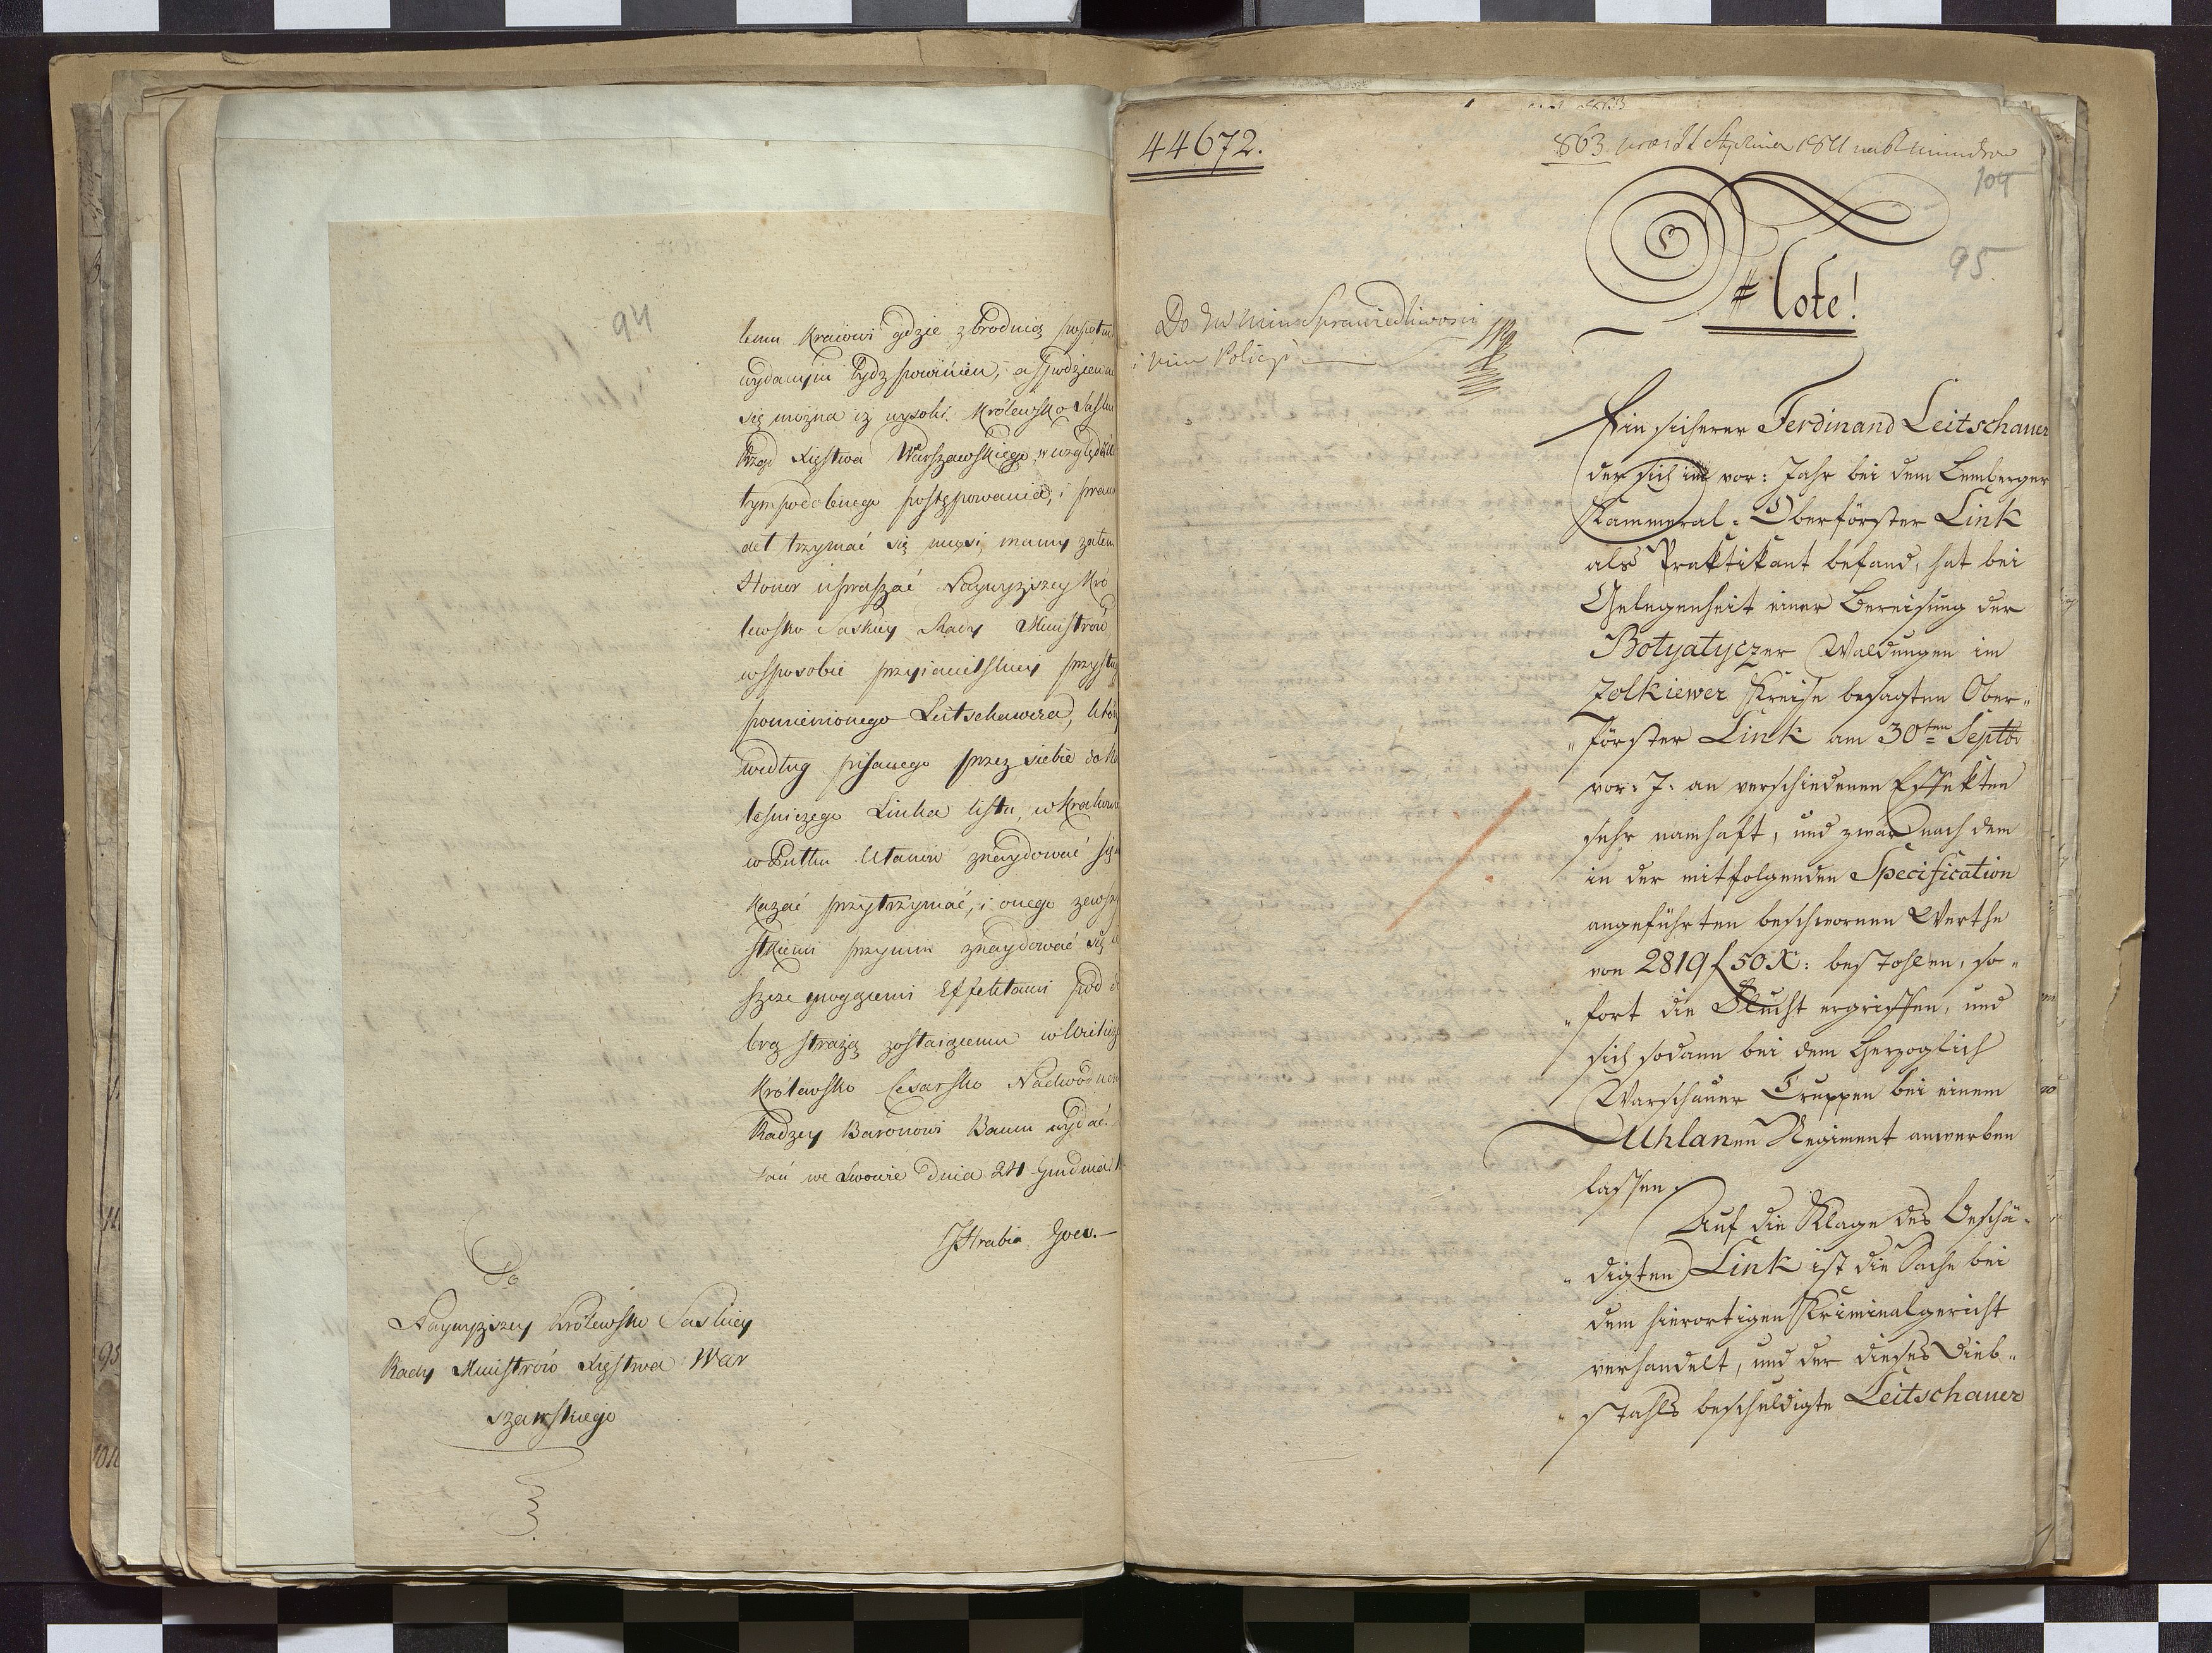 94
temu Kraiowi gdzie zbrodnią popełnił
wydanym bydz powinien, a spodziewać
się można iż wysoki Królewsko Saski
Rząd Xięstwa Warszawskiego, względem
tym podobnego postępowania, i praw
det trzymać się musi, mamy zatem
Honor upraszać Naywyższey Kró
lewsko Saskiey Rady Ministrow,
w sposobie przyiacielskiey przysługi
pomienionego Leitschauera, który
według pisanego przez siebie do Na
leśniczego Linka listu, w Krakowie
w Pułku Ułanów znaydować się
kazać przytrzymać, i onego zewszy
stkiemi przy nim znaydować się ie
szcze mogącemi Effektami pod do
brą strażą zostaiącemu w Wieliczce
Królewsko Cesarsko Nadwornemu
Radzcy Baronowi Baum wydać.
Dań we Lwowie Dnia 24 Grudnia
Hrabia Goes.
Do
Naywyższey Królewsko Saskiey
Rady Ministrów Xięstwa War
szawskiego
44672.
863.
104
95.
Note!
Do JW Min Sprawiedliwosci
i Min Policyi
Ein sicherer Ferdinand Leitschauer
der sich im vor: Jahr bei dem Lemberger
Kammeral-Oberförster Link
als Praktikant befand, hat bei
Gelegenheit einer Bereisung der
Botyatyczer Waldungen im
Zolkiewer Kreise besagten Ober-
förster Link am 30ten Septbr
vor: J: an verschiedenen Effekten
sehr namhaft, und zwar nach dem
in der mitfolgenden Specification
angeführten beschwornen Werthe
von 2819 f 50 X: bestohlen, so-
fort die Flucht ergriffen, und
sich sodann bei dem Herzoglich
Warschauer Truppen bei einem
Uhlanen Regiment anwerben
lassen.
Auf die Klage des Beschä-
digten Link ist die Sache bei
dem hierortigen Kriminalgericht
verhandelt, und der dieses Dieb-
stahls beschuldigte Leitschauer